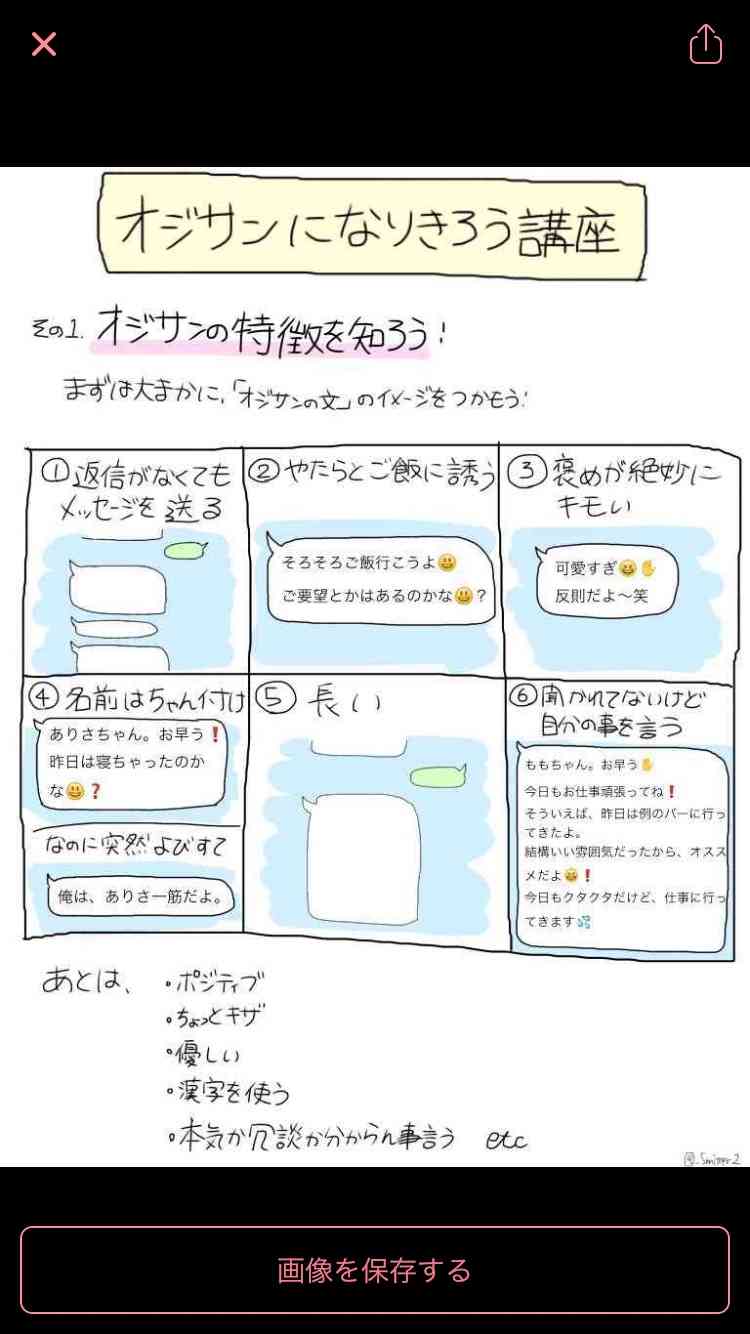 オジサンになりきろう講座
その1. オジサンの特徴を知ろう!
まずは大まかに、「オジサンの文」のイメージをつかもう!
①返信がなくても
メッセージを送る
②やたらとご飯に誘う
そろそろご飯行こうよ😃
ご要望とかはあるのかな😃？
③褒めが絶妙に
キモい
可愛すぎ😃✋
反則だよ〜笑
④名前はちゃん付け
ありさちゃん。お早う❗
昨日は寝ちゃったのか
な😃❓
なのに突然よびすて
俺は、ありさ一筋だよ。
⑤長い
⑥聞かれてないけど
自分の事を言う
ももちゃん。お早う✋
今日もお仕事頑張ってね❗
そういえば、昨日は例のバーに行っ
てきたよ。
結構いい雰囲気だったから、オスス
メだよ😄❗
今日もクタクタだけど、仕事に行っ
てきます💦
あとは、
・ポジティブ
・ちょっとキザ
・優しい
・漢字を使う
・本気か冗談か分からん事言う etc
画像を保存する